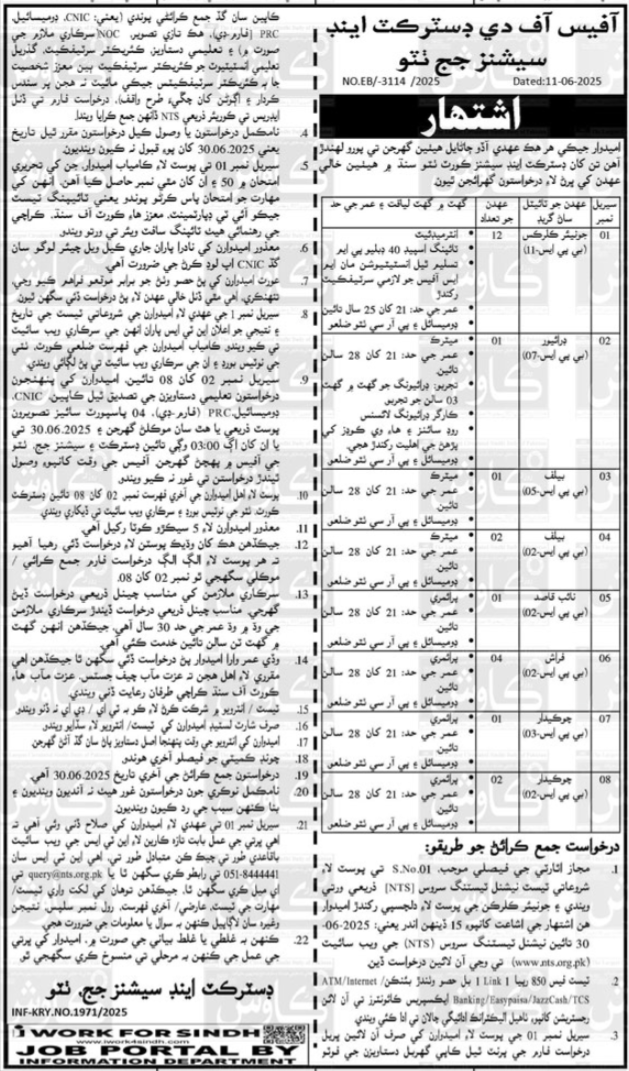 آفيس آف دي ڊسٽرڪٽ اينڊ
سيشنز جج ٺٽو
NO.EB/-3114 /2025 Dated:11-06-2025
اشتهار
اميدوار جيڪي هر هڪ عهدي آڏو ڄاڻايل هيٺين گهرجن تي پورو لهندڙ
آهن تن کان ڊسٽرڪٽ اينڊ سيشنز ڪورٽ ٺٽو سنڌ ۾ هيٺين خالي
عهدن کي ڀرڻ لاءِ درخواستون گهرائجن ٿيون.
سيريل نمبر
عهدن جو ٽائيٽل سان گريڊ
عهدن جو تعداد
گهٽ ۾ گهٽ لياقت ۽ عمر جي حد
01
جونيئر ڪلارڪس
(بي پي ايس-11)
12
انٽرميڊئيٽ
ٽائپنگ اسپيڊ 40 ڊبليو پي ايم
تسليم ٿيل انسٽيٽيوشن مان ايم
ايس آفيس جو لازمي سرٽيفڪيٽ
رکندڙ
عمر جي حد: 21 کان 25 سال تائين
ڊوميسائل ۽ پي آر سي ٺٽو ضلعو
02
ڊرائيور
(بي پي ايس-07)
01
ميٽرڪ
عمر جي حد: 21 کان 28 سالن
تائين
تجربو: ڊرائيونگ جو گهٽ ۾ گهٽ
03 سالن جو تجربو
ڪارگر ڊرائيونگ لائسنس
روڊ سائنز ۽ هاءِ وي ڪوڊز کي
پڙهڻ جي اهليت رکندڙ هجي.
ڊوميسائل ۽ پي آر سي ٺٽو ضلعو
03
بيلف
(بي پي ايس-05)
01
ميٽرڪ
عمر جي حد: 21 کان 28 سالن
تائين
ڊوميسائل ۽ پي آر سي ٺٽو ضلعو
04
بيلف
(بي پي ايس-02)
02
ميٽرڪ
عمر جي حد: 21 کان 28 سالن
تائين
ڊوميسائل ۽ پي آر سي ٺٽو ضلعو
05
نائب قاصد
(بي پي ايس-02)
01
پرائمري
عمر جي حد: 21 کان 28 سالن
تائين
ڊوميسائل ۽ پي آر سي ٺٽو ضلعو
06
فراش
(بي پي ايس-02)
04
پرائمري
عمر جي حد: 21 کان 28 سالن
تائين
ڊوميسائل ۽ پي آر سي ٺٽو ضلعو
07
چوڪيدار
(بي پي ايس-03)
01
پرائمري
عمر جي حد: 21 کان 28 سالن
تائين
ڊوميسائل ۽ پي آر سي ٺٽو ضلعو
08
چوڪيدار
(بي پي ايس-02)
02
پرائمري
عمر جي حد: 21 کان 28 سالن
تائين
ڊوميسائل ۽ پي آر سي ٺٽو ضلعو
درخواست جمع ڪرائڻ جو طريقو:
1. مجاز اٿارٽي جي فيصلي موجب، S.No.01 تي پوسٽ لاءِ
شروعاتي ٽيسٽ نيشنل ٽيسٽنگ سروس [NTS] ذريعي ورتي
ويندي ۽ جونيئر ڪلارڪن جي پوسٽ لاءِ دلچسپي رکندڙ اميدوار
هن اشتهار جي اشاعت کانپوءِ 15 ڏينهن اندر يعني: 2025-06-
30 تائين نيشنل ٽيسٽنگ سروس (NTS) جي ويب سائيٽ
(www.nts.org.pk) تي وڃي آن لائين درخواست ڏين.
2. ٽيسٽ فيس 850 رپيا 1 Link 1 بل حصو وٺندڙ بئنڪن/ ATM/Internet
Banking/Easypaisa/JazzCash/TCS ايڪسپريس ڪائونٽرز تي آن لائن
رجسٽريشن کانپوءِ ٺاهيل اليڪٽرانڪ ادائيگي چالان تي ادا ڪئي ويندي
3. سيريل نمبر 01 جي پوسٽ لاءِ اميدوارن کي صرف آن لائين ڀريل
درخواست فارم جي پرنٽ ٿيل ڪاپي گهربل دستاويزن جي فوٽو
ڪاپين سان گڏ جمع ڪرائڻي پوندي (يعني: CNIC، ڊوميسائيل،
PRC (فارم-ڊي)، هڪ تازي تصوير، NOC/سرڪاري ملازم جي
صورت ۾) ۽ تعليمي دستاويز، ڪئريڪٽر سرٽيفڪيٽ، گذريل
تعليمي انسٽيٽيوٽ جو ڪئريڪٽر سرٽيفڪيٽ ٻين معزز شخصيت
جا ٻه ڪئريڪٽر سرٽيفڪيٽس جيڪي مائٽ نه هجن پر سندس
ڪردار ۽ (اڳوڻن کان چڱيءَ طرح واقف)، درخواست فارم تي ڏنل
ايڊريس تي ڪوريئر ذريعي NTS ڏانهن جمع ڪرايا ويندا.
4. نامڪمل درخواستون يا وصول ڪيل درخواستون مقرر ٿيل تاريخ
يعني 30.06.2025 کان پوءِ قبول نه ڪيون وينديون.
5. سيريل نمبر 01 تي پوسٽ لاءِ ڪامياب اميدوار، جن کي تحريري
امتحان ۾ 50 ۽ ان کان مٿي نمبر حاصل ڪيا آهن. انهن کي
مهارت جو امتحان پاس ڪرڻو پوندو يعني ٽائيپنگ ٽيسٽ
جيڪو آئي ٽي ڊپارٽمينٽ، معزز هاءِ ڪورٽ آف سنڌ، ڪراچي
جي رهنمائي هيٺ ٽائپنگ سافٽ ويئر تي ورتو ويندو
6. معذور اميدوارن کي نادرا پاران جاري ڪيل ويل چيئر لوگو سان
گڏ CNIC اپ لوڊ ڪرڻ جي ضرورت آهي.
7. عورت اميدوارن کي پڻ حصو وٺڻ جو برابر موقعو فراهم ڪيو وڃي
ٿو، اهي مٿي ڏنل خالي عهدن لاءِ پڻ درخواست ڏئي سگهن ٿيون.
8. سيريل نمبر 1 جي عهدي لاءِ اميدوارن جي شروعاتي ٽيسٽ جي تاريخ
۽ نتيجي جو اعلان اين ٽي ايس پاران انهن جي سرڪاري ويب سائيٽ
تي ڪيو ويندو ڪامياب اميدوارن جي فهرست ضلعي ڪورٽ، ٺٽي
جي نوٽيس بورڊ ۽ ان جي سرڪاري ويب سائيٽ تي پڻ لڳائي ويندي.
9. سيريل نمبر 02 کان 08 تائين، اميدوارن کي پنهنجون
درخواستون تعليمي دستاويزن جي تصديق ٿيل ڪاپين، CNIC،
ڊوميسائل، PRC (فارم-ڊي)، 04 پاسپورٽ سائيز تصويرون
پوسٽ ذريعي يا هٿ سان موڪلڻ گهرجن ۽ 30.06.2025 تي
يا ان کان اڳ 03:00 وڳي تائين ڊسٽرڪٽ ۽ سيشنز جج، ٺٽو
جي آفيس ۾ پهچڻ گهرجن. آفيس جي وقت کانپوءِ وصول
ٿيندڙ درخواستن تي غور نه ڪيو ويندو
10. پوسٽ لاءِ اهل اميدوارن جي آخري فهرست نمبر 02 کان 08 تائين ڊسٽرڪٽ
ڪورٽ، ٺٽو جي نوٽيس بورڊ ۽ سرڪاري ويب سائيٽ تي ڏيکاري ويندي
11. معذور اميدوارن لاءِ 5 سيڪڙو ڪوٽا رکيل آهي.
12. جيڪڏهن هڪ کان وڌيڪ پوسٽن لاءِ درخواست ڏئي رهيا آهيو
ته هر پوسٽ لاءِ الڳ الڳ درخواست فارم جمع ڪرائي /
موڪلي سگهجي ٿو نمبر 02 کان 08.
13. سرڪاري ملازمن کي مناسب چينل ذريعي درخواست ڏيڻ
گهرجي. مناسب چينل ذريعي درخواست ڏيندڙ سرڪاري ملازمن
جي وڌ ۾ وڌ عمر جي حد 30 سال آهي، جيڪڏهن انهن گهٽ
۾ گهٽ ٽن سالن تائين خدمت ڪئي آهي.
14. وڏي عمر وارا اميدوار پڻ درخواست ڏئي سگهن ٿا جيڪڏهن اهي
مقرري لاءِ اهل هجن ته عزت مآب چيف جسٽس، عزت مآب هاءِ
ڪورٽ آف سنڌ ڪراچي طرفان رعايت ڏني ويندي.
15. ٽيسٽ / انٽرويو ۾ شرڪت ڪرڻ لاءِ ڪو به ٽي اي / ڊي اي نه ڏنو ويندو
16. صرف شارٽ لسٽيڊ اميدوارن کي ٽيسٽ/ انٽرويو لاءِ سڏايو ويندو
17. اميدوارن کي انٽرويو جي وقت پنهنجا اصل دستاويز پاڻ سان گڏ آڻڻ گهرجن
18. چونڊ ڪميٽي جو فيصلو آخري هوندو.
19. درخواستون جمع ڪرائڻ جي آخري تاريخ 30.06.2025 آهي.
20. نامڪمل نوڪري جون درخواستون غور هيٺ نه آنديون وينديون ۽
بنا ڪنهن سبب جي رد ڪيون وينديون.
21. سيريل نمبر 01 تي عهدي لاءِ اميدوارن کي صلاح ڏني وئي آهي ته
اهي ڀرتي جي عمل بابت تازه ڪارين لاءِ اين ٽي ايس جي ويب سائيٽ
باقاعدي طور تي چيڪ ڪن. متبادل طور تي، اهي اين ٽي ايس سان
051-8444441 تي رابطو ڪري سگهن ٿا يا query@nts.org.pk تي
اي ميل ڪري سگهن ٿا، جيڪڏهن توهان کي لکت واري ٽيسٽ/
مهارت جي ٽيسٽ، عارضي/ آخري فهرست، رول نمبر سلپس، نتيجن
وغيره سان لاڳاپيل ڪنهن به سوال يا معلومات جي ضرورت هجي.
22. ڪنهن به غلطي يا غلط بياني جي صورت ۾، اميدوار کي ڀرتي
جي عمل جي ڪنهن به مرحلي تي منسوخ ڪري سگهجي ٿو
ڊسٽرڪٽ اينڊ سيشنز جج، ٺٽو
INF-KRY.NO.1971/2025
I WORK FOR SINDH
www.iwork4sindh.com
JOB PORTAL BY
INFORMATION DEPARTMENT